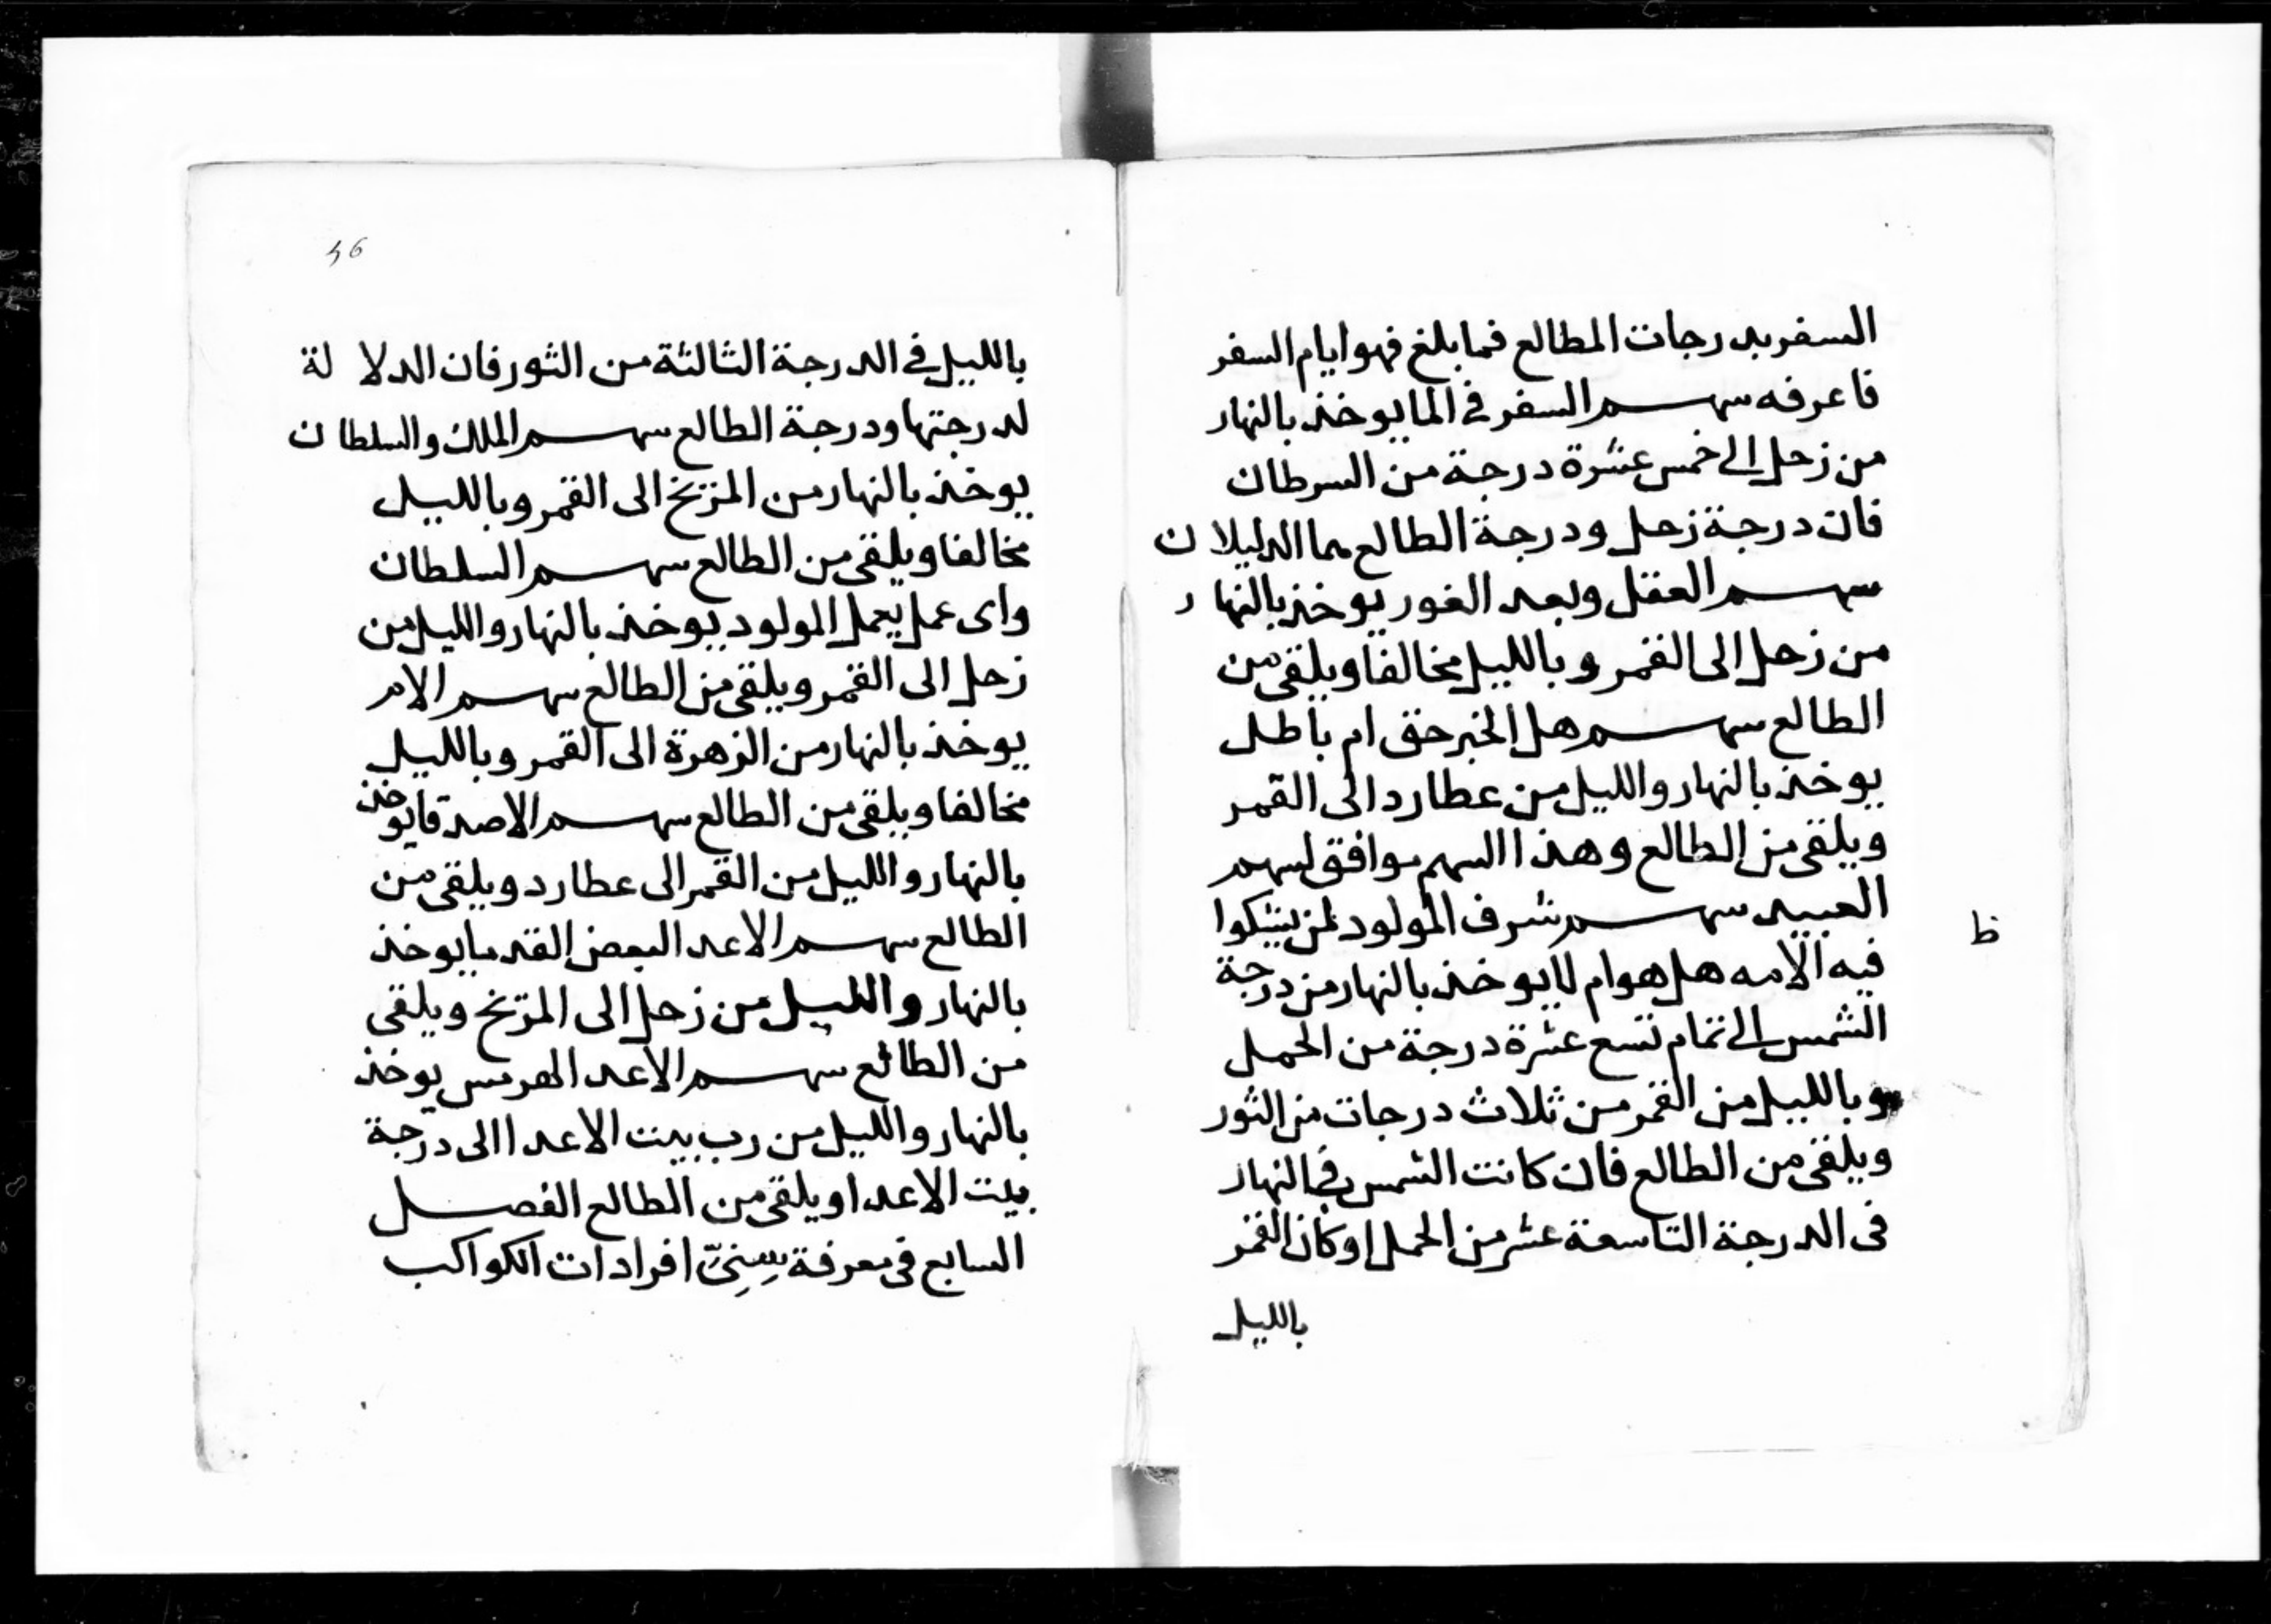 السفر بدرجات المطالع فما بلغ فهو ايام السفر
فاعرفه سهم السفر في الما يوخذ بالنهار
من زحل الى خمس عشرة درجة من السرطان
فان درجة زحل ودرجة الطالع هما الدليلان
سهم العقل وبعد الغور يوخذ بالنهار
من زحل الى القمر وبالليل مخالفا ويلقى من
الطالع سهم هل الخبر حق ام باطل
يوخذ بالنهار والليل من عطارد الى القمر
ويلقى من الطالع وهذا السهم موافق لسهم
العبيد سهم شرف المولود لمن يشكوا
فيه الامه هل هو ام لا يوخذ بالنهار من درجة
الشمس الى تمام تسع عشرة درجة من الحمل
وبالليل من القمر من ثلاث درجات من الثور
ويلقى من الطالع فان كانت الشمس في النهار
فى الدرجة التاسعة عشر من الحمل او كان القمر
بالليل
ظ
46
بالليل في الدرجة الثالثة من الثور فان الدلالة
لدرجتها ودرجة الطالع سهم الملك والسلطان
يوخذ بالنهار من المريخ الى القمر وبالليل
مخالفا ويلقى من الطالع سهم السلطان
واى عمل يعمل المولود يوخذ بالنهار والليل من
زحل الى القمر ويلقى من الطالع سهم الام
يوخذ بالنهار من الزهرة الى القمر وبالليل
مخالفا ويلقى من الطالع سهم الاصدقا يوخذ
بالنهار والليل من القمر الى عطارد ويلقى من
الطالع سهم الاعد البعض القدما يوخذ
بالنهار والليل من زحل الى المريخ ويلقى
من الطالع سهم الاعد الهرمس يوخذ
بالنهار والليل من رب بيت الاعدا الى درجة
بيت الاعدا ويلقى من الطالع الفصل
السابع فى معرفة سِنِىّ افرادات الكواكب